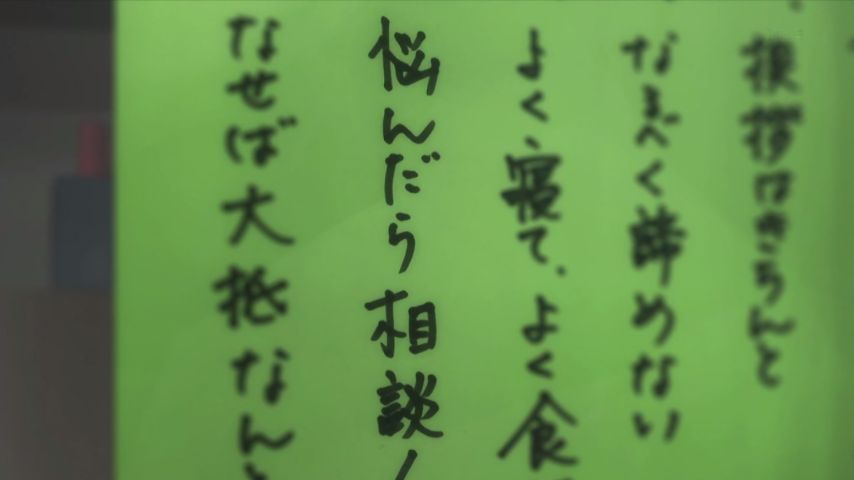 、挨拶はきちんと
、なるべく諦めない
よく、寝て、よく食
悩んだら相談！
なせば大抵なんと